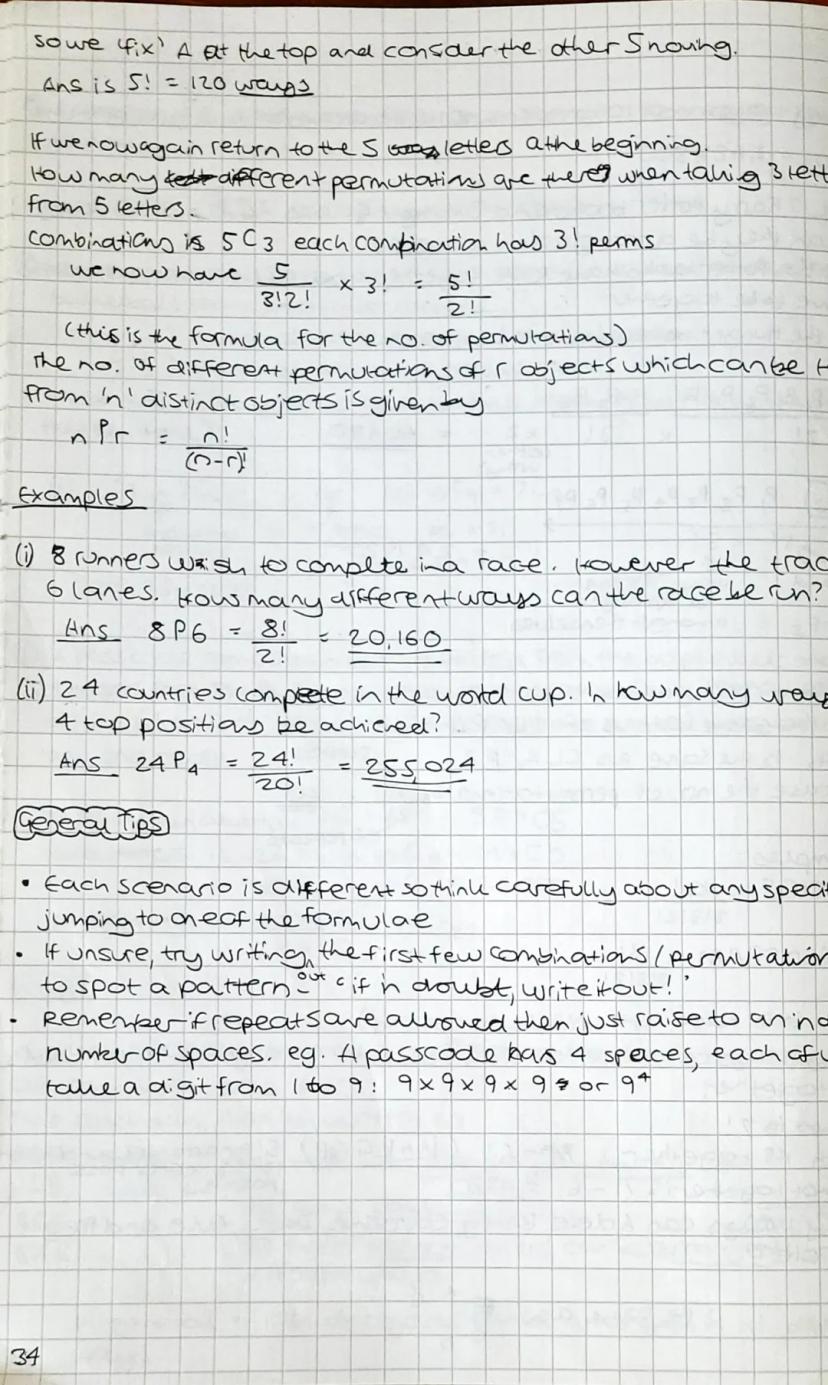 so we 'fix' A at the top and consider the other 5 moving.
Ans is 5! = 120 ways
If we now again return to the 5 letters at the beginning.
How many different permutations are there when taking 3 lett
from 5 letters.
Combinations is 5C3 each combination has 3! perms
we now have 5/3!2! × 3! = 5!/2!
(this is the formula for the no. of permutations)
The no. of different permutations of r objects which can be t
from 'n' distinct objects is given by
nPr = n!/(n-r)!
Examples
(i) 8 runners wish to complte in a race. However the trac
6 lanes. How many different ways can the race be run?
Ans 8P6 = 8!/2! = 20,160
(ii) 24 countries compete in the world cup. In how many way
4 top positions be achieved?
Ans 24P4 = 24!/20! = 255,024
General Tips
• Each scenario is different so think carefully about any speci
jumping to one of the formulae
• If unsure, try writing out the first few combinations/permutation
to spot a pattern - 'if in doubt, write it out!'
• Remember if repeats are allowed then just raise to an in
number of spaces. eg. A passcode has 4 spaces, each of
take a digit from 1 to 9: 9×9×9×9 or 9⁴
34